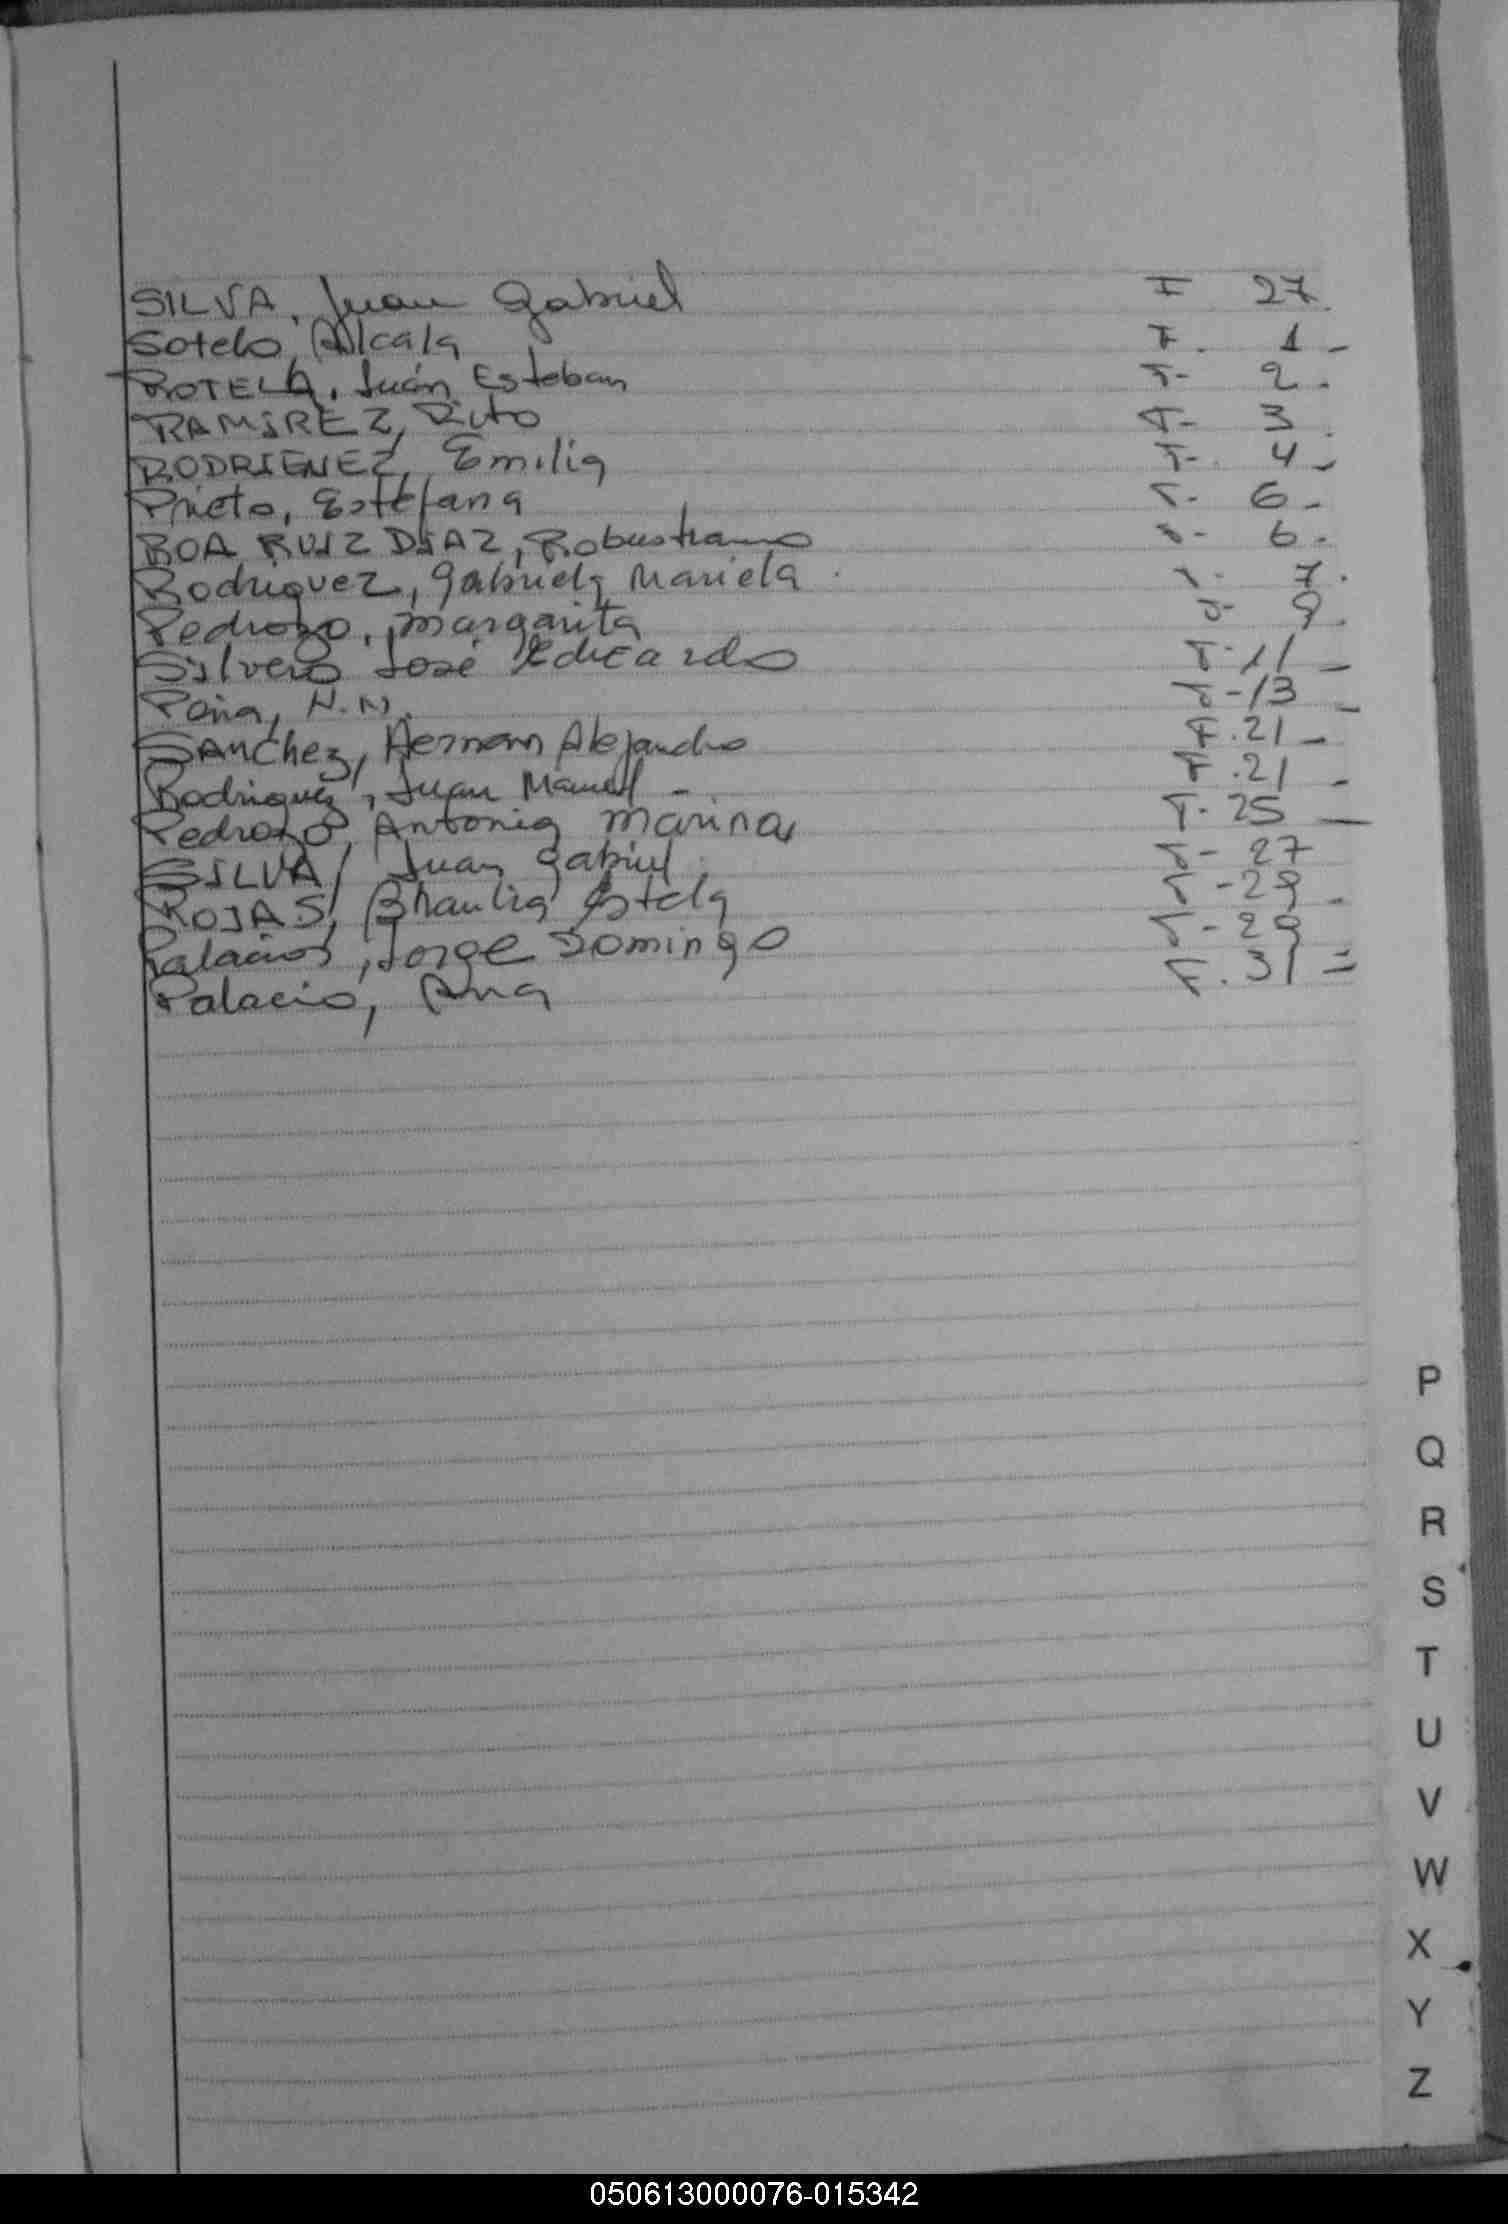 SILVA, Juan Gabriel F 27.
Sotelo, Alcala F. 1-
ROTELA, Juán Esteban F- 2.
RAMIREZ, Rito F- 3.
RODRIGUEZ, Emilia F-. 4-
Prieto, Estefana F- 6-
ROA RUIZ DIAZ, Robustiano F- 6.
Rodriguez, Gabriela Mariela F- 7.
Pedrozo, Margarita F- 9.
Silvero José Edicardo F- 11-
Peña, N.N. F-13-
SANChez, Hernan Alejandro F.21-
Rodriguez, Juan Manuel - F.21-
Pedrozo, Antonia Marina F- 25-
SILVA, Juan Gabriel. F- 27
ROJAS, Braulia Estela F-29.
Palacios, Jorge Domingo F-29
Palacio, Ana F. 31=
P
Q
R
S
T
U
V
W
X
Y
Z
050613000076-015342